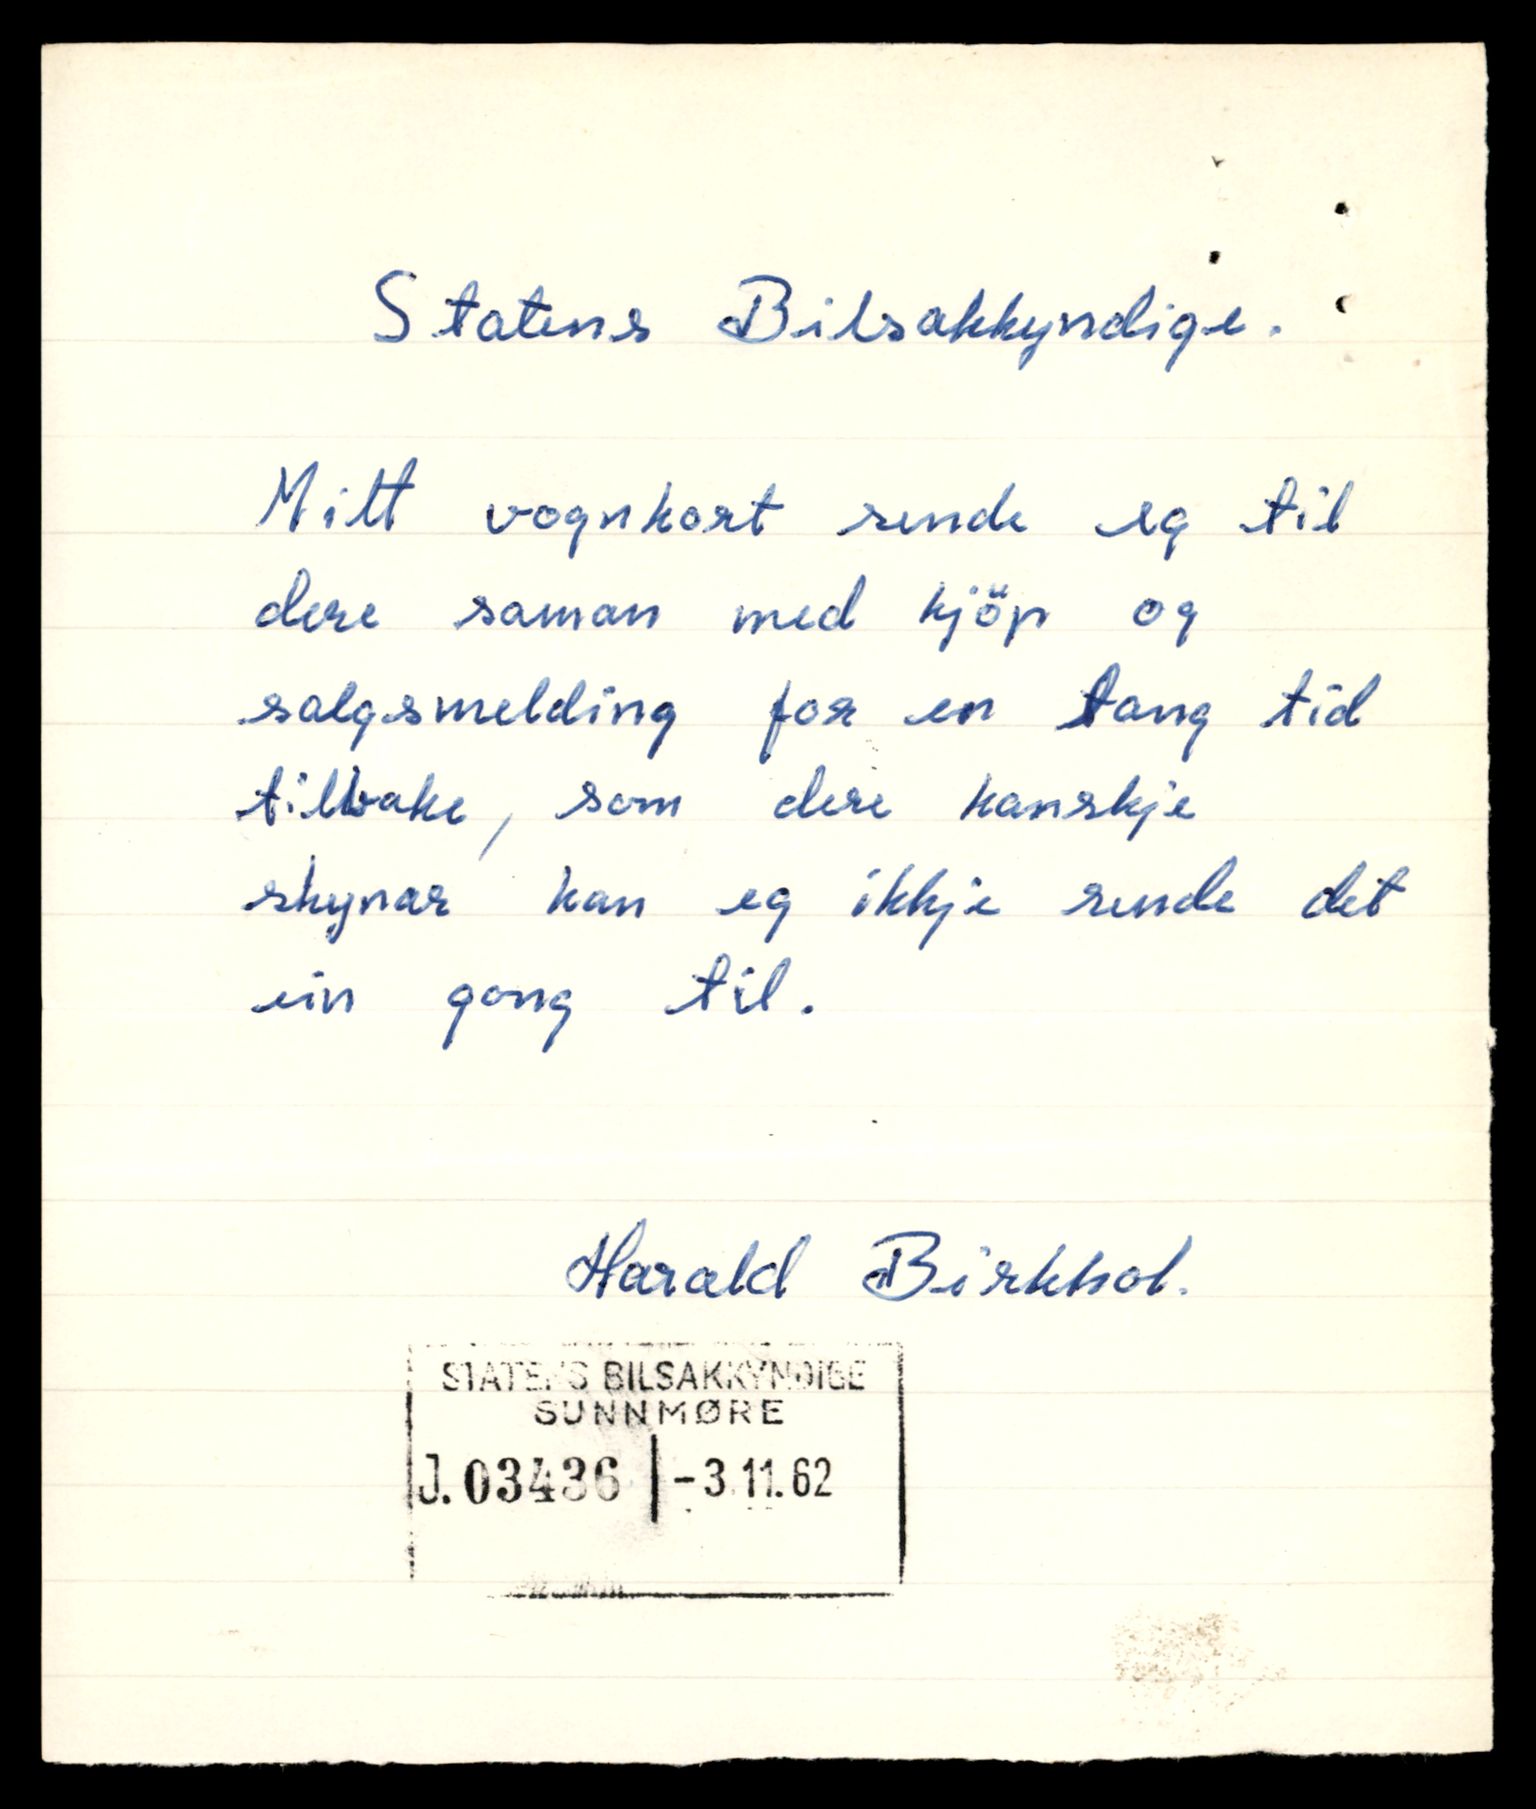 Statens Bilsakkyndige.
Mitt vognkort sende eg til
dere saman med kjöp og
salgsmelding for en lang tid
tilbake, som dere kanskje
skynar kan eg ikkje sende det
ein gong til.
Harald Birkhol.
STATENS BILSAKKYNDIGE
SUNNMØRE
J. 03436 | -3.11.62